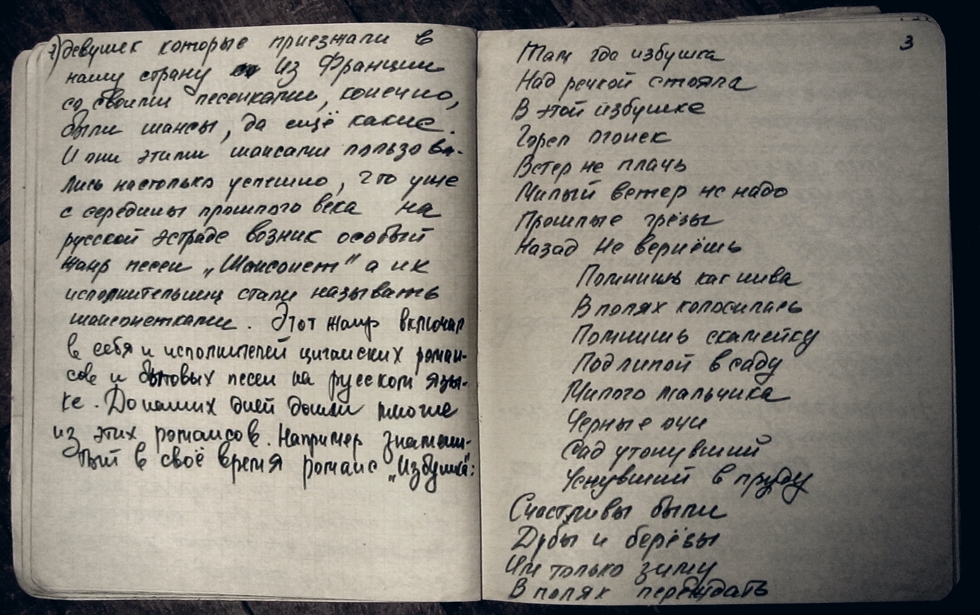 7) девушек которые приезжали в
нашу страну из Франции
со своими песенками, конечно,
были шансы, да ещё какие.
И они этими шансами пользова-
лись настолько успешно, что уже
с середины прошлого века на
русской эстраде возник особый
жанр песен „Шансонет" а их
исполнительниц стали называть
шансонетками. Этот жанр включал
в себя и исполнителей цыганских роман-
сов и бытовых песен на русском язы-
ке. До наших дней дошли многие
из этих романсов. Например знамени-
тый в своё время романс „Избушка":
3
Там где избушка
Над речкой стояла
В этой избушке
Горел огонек
Ветер не плачь
Милый ветер не надо
Прошлые грёзы
Назад не вернёшь
Помнишь как нива
В полях колосилась
Помнишь скамейку
Под липой в саду
Милого мальчика
Черные очи
Сад утонувший
Уснувший в пруду
Счастливы были
Дубы и берёзы
Им только зиму
В полях переждать